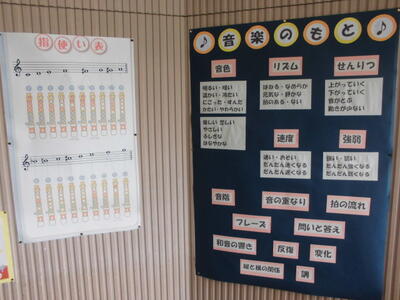 指使い表
音楽のもと
音色
明るい・暗い
温かい・冷たい
にごった・すんだ
かたい・やわらかい
厳しい 悲しい
やさしい
ふしぎな
はなやかな
リズム
はねる・なめらか
元気な・静かな
拍のある・ない
せんりつ
上がっていく
下がっていく
音がとぶ
動きが少ない
速度
速い・おそい
だんだん速くなる
だんだん遅くなる
強弱
強い・弱い
だんだん強くなる
だんだん弱くなる
音階
音の重なり
拍の流れ
フレーズ
問いと答え
和音の響き
反復
変化
縦と横の関係
調